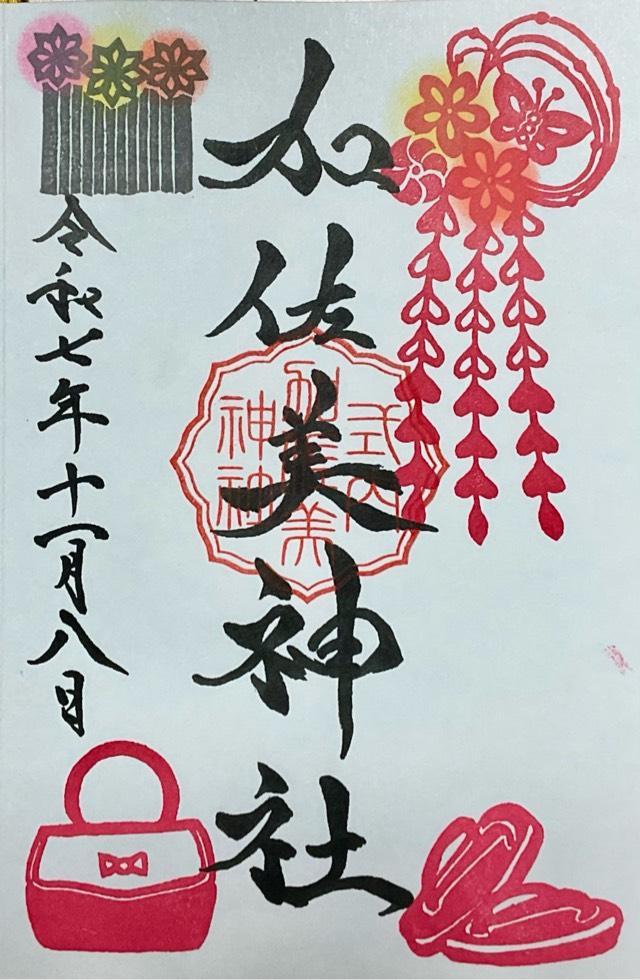 加佐美神社
式内
加佐美
神社
令和七年十一月八日